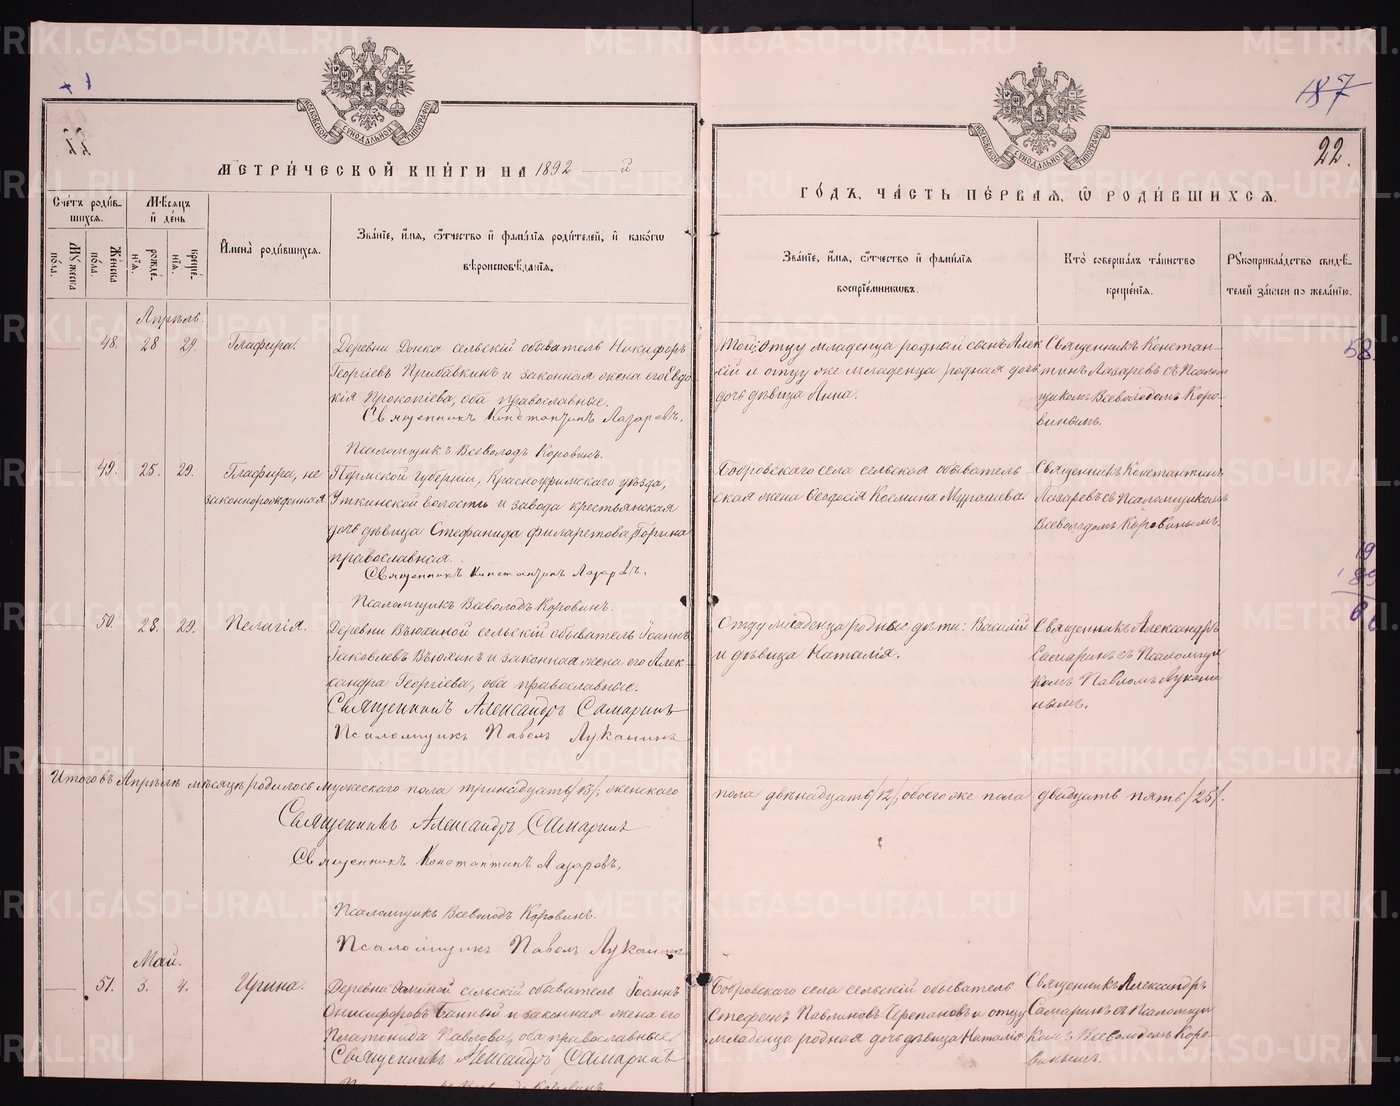 МЕТРИ́ЧЕСКОЙ КНИ́ГИ НА 1892 — й
Сче́тъ роди́вшихся.
Мѣ́сяцъ и де́нь
Имена̀ роди́вшихся.
Зва́нiе, и́мя, ѻ́тчество и фами́лiя роди́телей, и како́гѡ вѣроисповѣ́данiя.
Му́жеска по́ла.
Же́нска по́ла.
рожде́нiя.
креще́нiя.
Апрѣль.
48. 28 29. Глафира.
Деревни Донка сельскiй обыватель Никифоръ
Георгiевъ Прибавкинъ и законная жена его Евдо
кiя Прокопiева, оба православные.
Священникъ Константинъ Лазаревъ.
Псаломщикъ Всеволодъ Коровинъ.
49. 25. 29. Глафира, не
законнорожденная
Пермской губернiи, Красноуфимскаго уѣзда,
Уткинской волости и завода крестьянская
дочь дѣвица Стефанида Филаретова Горина
православная.
Священникъ Константинъ Лазаревъ.
Псаломщикъ Всеволодъ Коровинъ.
50 28. 29. Пелагiя.
Деревни Вьюхиной сельскiй обыватель Iоаннъ
Iаковлевъ Вьюхинъ и законная жена его Алек-
сандра Георгiева, оба православные.
Священникъ Александръ Самаринъ
Псаломщикъ Павелъ Луканинъ
Итого въ Апрѣлѣ мѣсяцѣ родилось мужескаго пола тринадцать /13/, женскаго
Священникъ Александръ Самаринъ
Священникъ Константинъ Лазаревъ,
Псаломщикъ Всеволодъ Коровинъ.
Псаломщикъ Павелъ Луканинъ
Май.
51. 3. 4. Ирина.
Деревни сельскiй обыватель Iоаннъ
Онисифоровъ и законная жена его
Платонида Павлова, оба православные
Священникъ Александръ Самаринъ
22.
ГО́ДЪ, ЧА́СТЬ ПЕ́РВАЯ, Ѡ РОДИ́ВШИХСЯ.
Зва́нiе, и́мя, ѻ́тчество и фами́лiя воспрiе́мникѡвъ.
Кто̀ соверша́лъ та́инство креще́нiя.
Рꙋкоприкла́дство свидѣ́телей за́писи по жела́нiю.
отцу младенца родный сынъ Алек
сiй и отцу же младенца родная дочь
дочь дѣвица Анна.
Священникъ Констан-
тинъ Лазаревъ съ Псалом
щикомъ Всеволодомъ Коро-
винымъ.
Бобровскаго села сельская обыватель
ская жена Феодосiя Космина Мургашева
Священникъ Константинъ
Лазаревъ съ Псаломщикомъ
Всеволодомъ Коровинымъ.
Отцу младенца родные дѣти: Василiй
и дѣвица Наталiя.
Священникъ Александръ
Самаринъ съ Псаломщи
комъ Павломъ Лукани
нымъ.
пола двѣнадцать /12/, обоего же пола двадцать пять /25/.
Бобровскаго села сельскiй обыватель
Стефанъ Павлиновъ Черепановъ и отцу
младенца родная дочь дѣвица Наталiя
Священникъ Александръ
Самаринъ съ Псаломщи
комъ Всеволодомъ Коро-
винымъ.